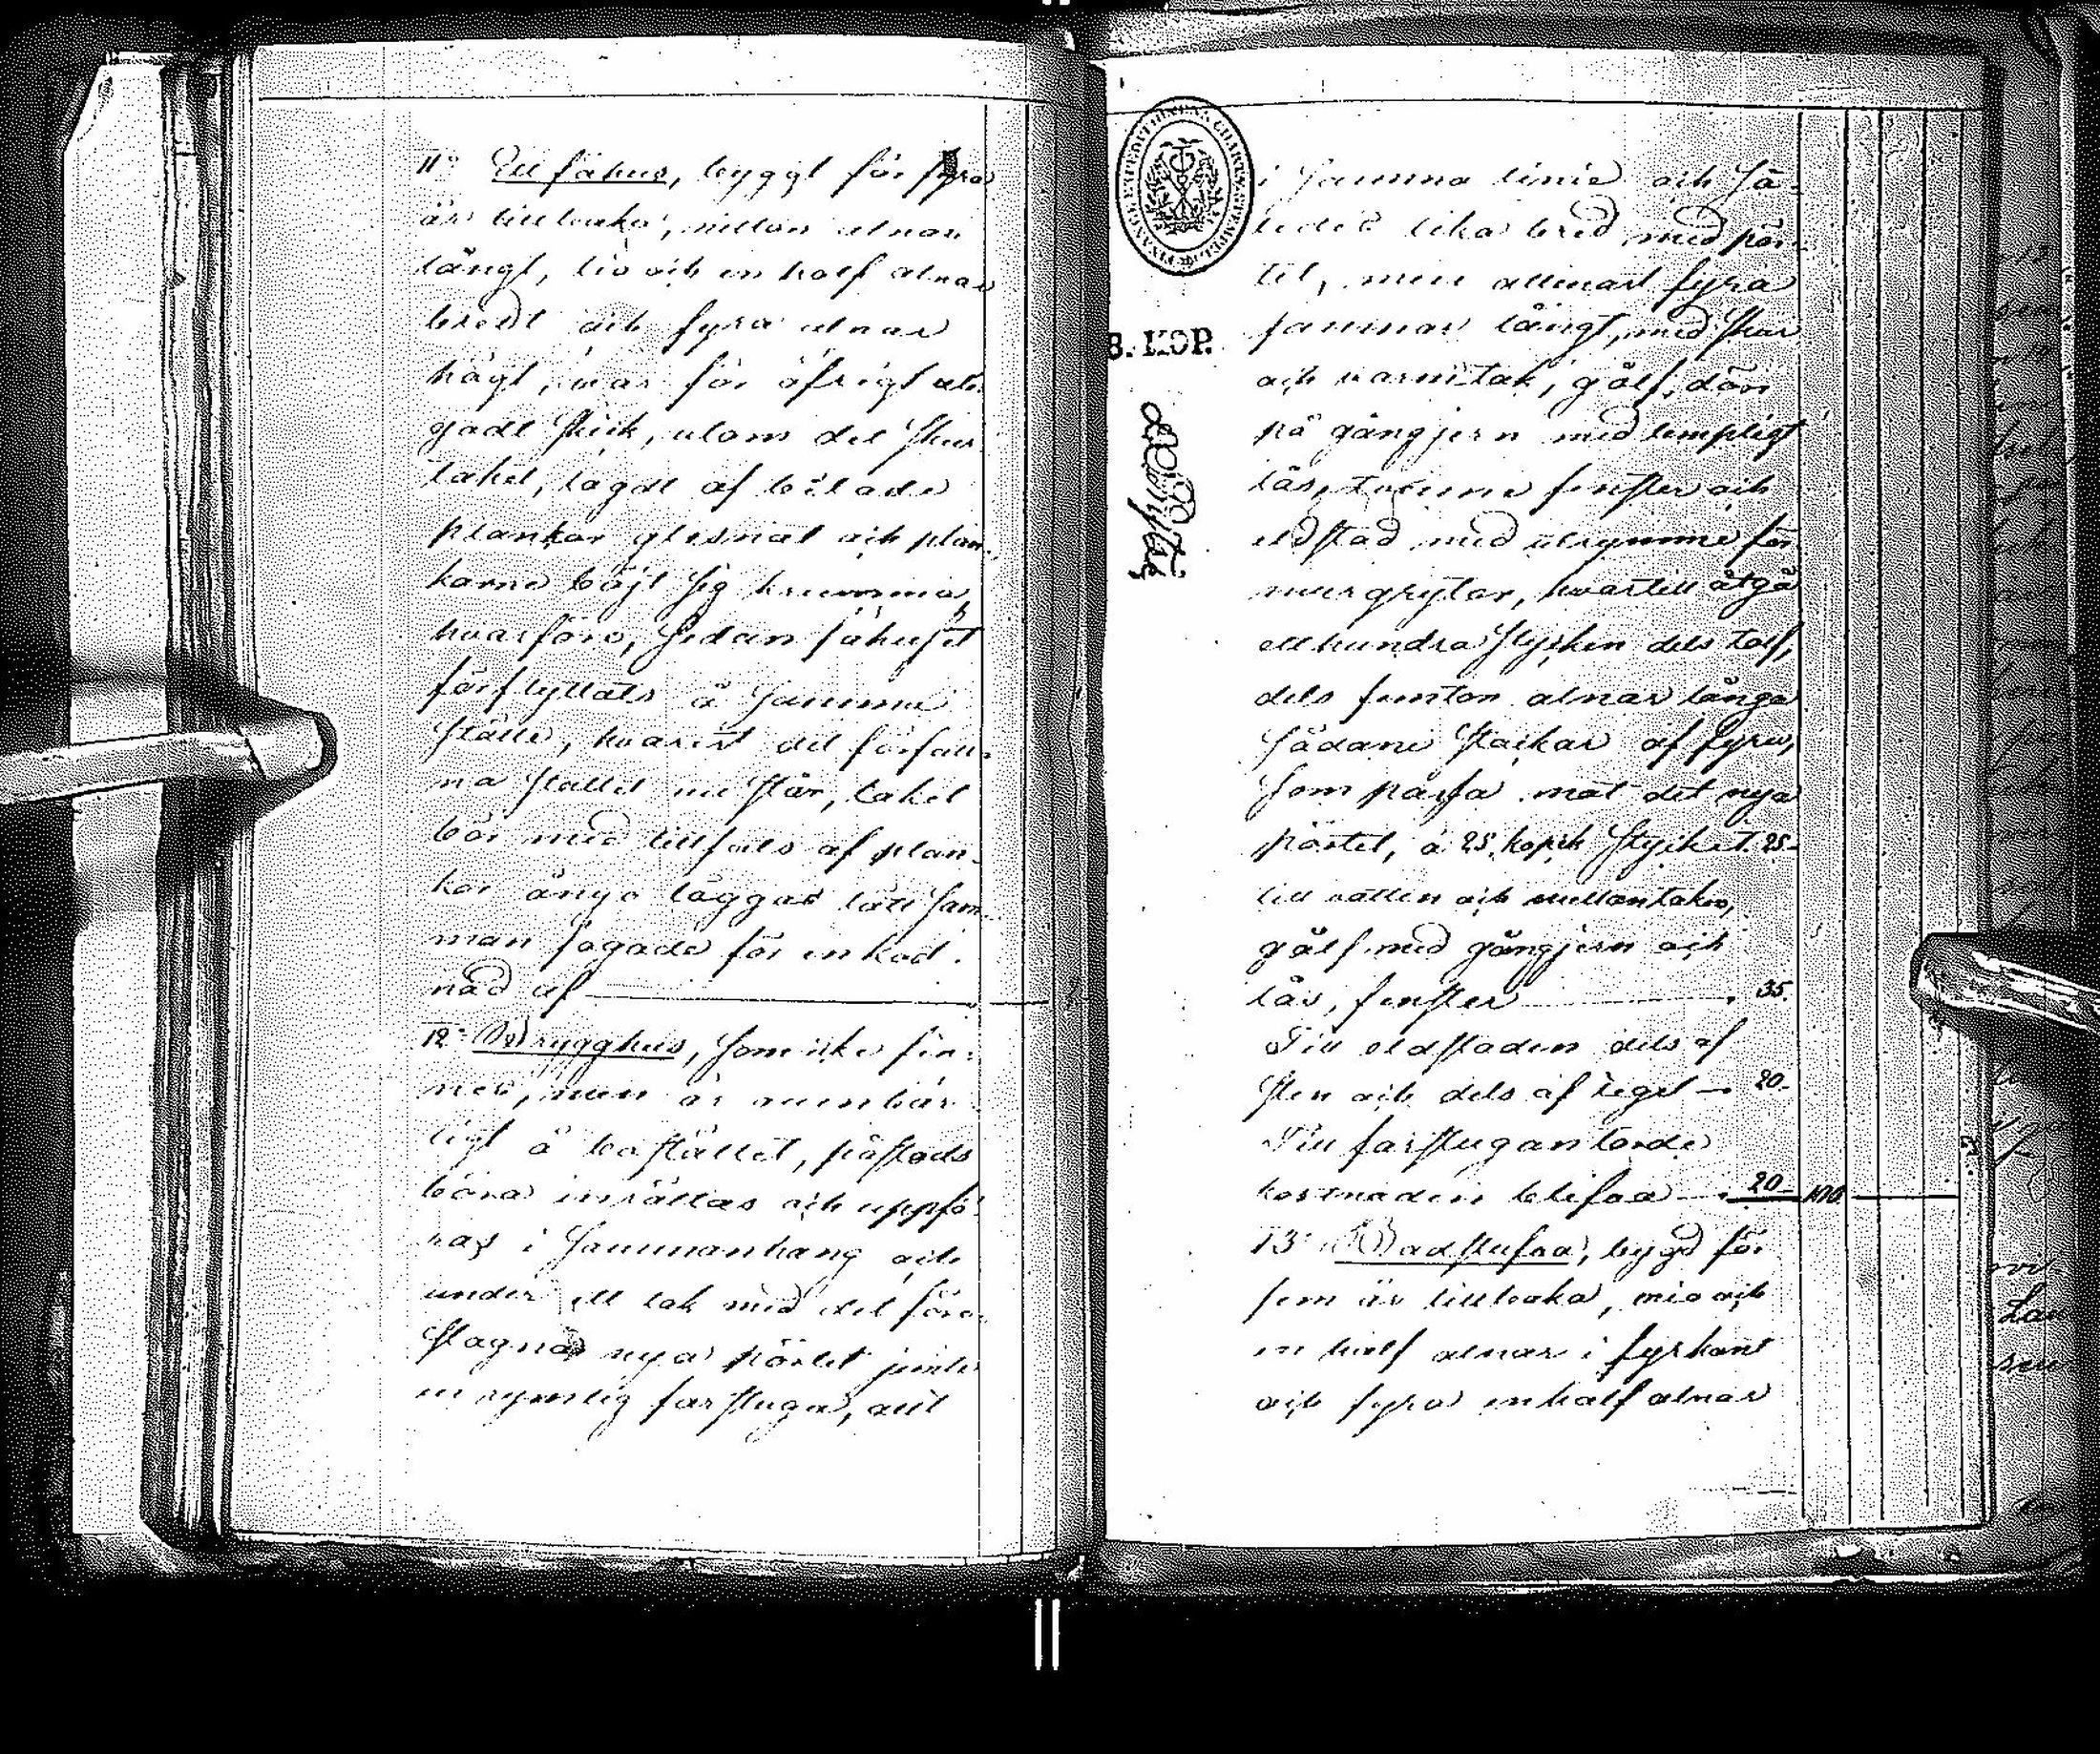 11º Ett fähus, byggt för fyra
år tillbaka, nitton alnar
långt, tio och en half alnar
bredt och fyra alnar
högt, var för öfrigt uti
godt skick, utom det skur
taket, lagdt af bilade
plankor glesnat och plan-
korne böjt sig krumma,
hvarföre, sedan fähuset
förflyttats å samma
ställe, hvarest det förfall-
na stallet nu står, taket
bör med tillsats af plan-
kor ånyo läggas tätt sam-
man fogade för en kost-
nad af
12º Brygghus, som icke fin-
nes, men är oumbär-
ligt å bostället, påstods
böra inrättas och uppfö-
ras i sammanhang och
under ett tak med det före-
slagna nya pörtet jemte
en rymlig farstuga, allt
i samma linie och så-
ledes lika bred med pör-
tet, men allenast fyra
famnar långt, med skur
och varmtak, gålf, dörr
på gångjern med lempligt
lås, tvenne fenster och
eldstad med utrymme för
murgrytor, hvartill åtgå
ett hundra stycken dels tolf,
dels femton alnar långa
sådane stockar af fyra,
som påssa mot det nya
pörtet, à 25 kopek stycket 25-
till vatten och mellantaken,
gålf med gångjern och
lås, fenster 35.
Till eldstaden dels af
sten och dels af tegel 20-
Till farstugan torde
kostnaden blifva 20- 100
13º Badstufva, bygd för
fem år tillbaka, nio och
en half alnar i fyrkant
och fyra en half alnar
8. KOP.